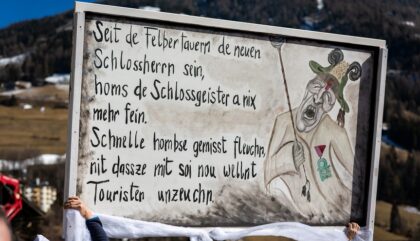 Seit de Felbertauern de neuen
Schlossherrn sein,
homs de Schlossgeister a nix
mehr fein.
Schnelle hombse gemisst fleuchn,
nit dassze mit soi nou wellnt
Touristen unzeuchn.